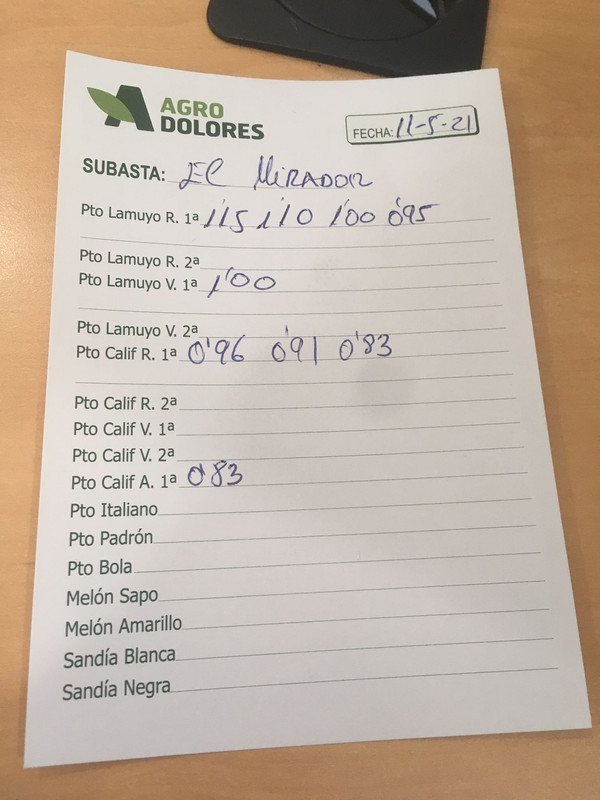 AGRO
DOLORES
FECHA: 11-5-21
SUBASTA: EL MIRADOR
Pto Lamuyo R. 1ª 1'15 1'10 1'00 0'95
Pto Lamuyo R. 2ª
Pto Lamuyo V. 1ª 1'00
Pto Lamuyo V. 2ª
Pto Calif R. 1ª 0'96 0'91 0'83
Pto Calif R. 2ª
Pto Calif V. 1ª
Pto Calif V. 2ª
Pto Calif A. 1ª 0'83
Pto Italiano
Pto Padrón
Pto Bola
Melón Sapo
Melón Amarillo
Sandía Blanca
Sandía Negra